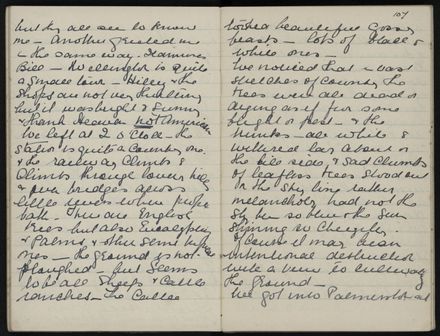 but they all see to know
me - Another greeted me
in the same way. Stamires
Bill - Wellington is quite
a small town - Hilly & the
shops are not very thrilling
but it was bright & sunny
& thank Heaven not American
We left at 2 o'clock - the
station is quite a country one.
& the railway climbs &
climbs through lovely hills
& over bridges across
little rivers where people
bath - there are English
trees but also Eucalyptus
& Palms & other semi tropical
ones - the ground is not
ploughed - but seems
to be all sheep & cattle
ranches - the cattle
107
looked beautiful glossy
beasts - lots of black &
white ones -
We noticed that in vast
stretches of country the
trees were all dead or
dying as if from some
blight or pest - & the
trunks - all white &
withered lay about on
the hill sides, & sad clumps
of leafless trees stood out
on the sky line rather
melancholy had not the
sky been so blue & the sun
shining so cheerfully.
Of course it may mean
intentional destruction
with a view to cultivating
the ground -
We got into Palmerston at